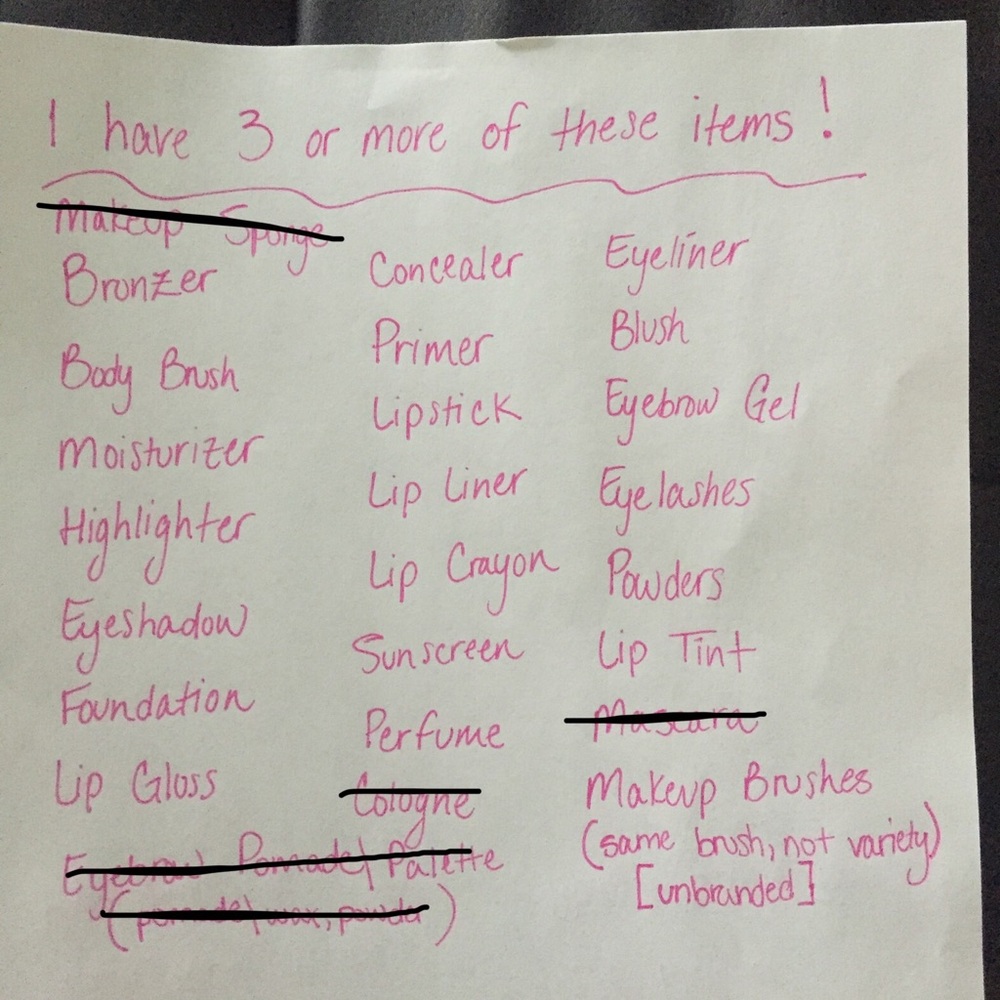 I have 3 or more of these items!
Makeup Sponge
Bronzer
Body Brush
Moisturizer
Highlighter
Eyeshadow
Foundation
Lip Gloss
Eyebrow Pomade/Palette
(pomade/wax, powder)
Concealer
Primer
Lipstick
Lip Liner
Lip Crayon
Sunscreen
Perfume
Cologne
Eyeliner
Blush
Eyebrow Gel
Eyelashes
Powders
Lip Tint
Mascara
Makeup Brushes
(same brush, not variety)
[unbranded]